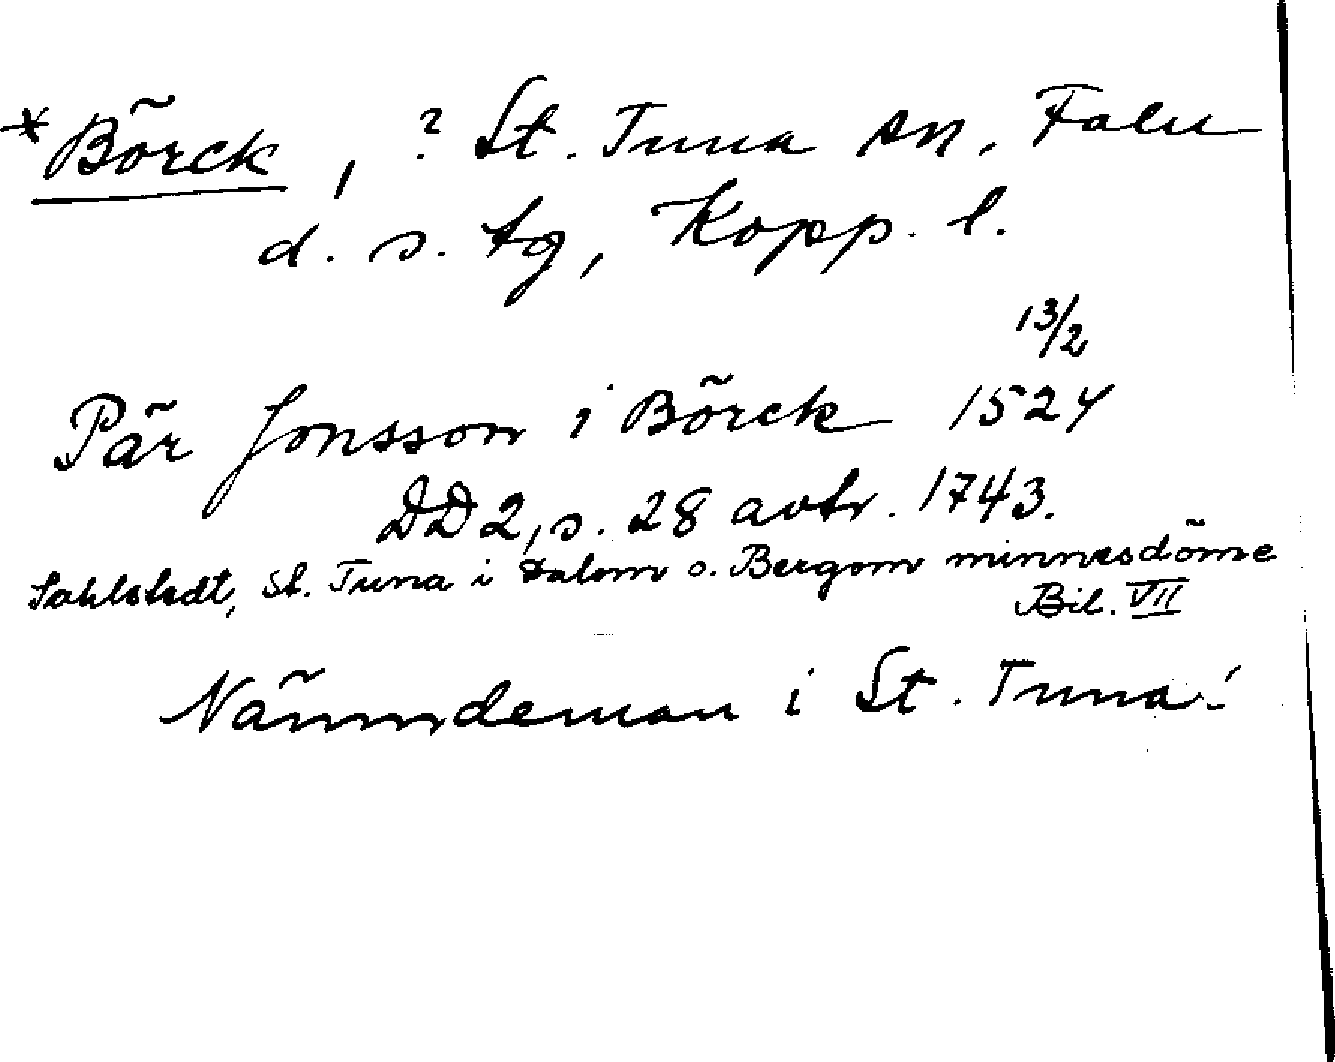 *Börck, ? St. Tuna sn, Falu
d. s. tg, Kopp. l.
13/2
Pär Jonsson i Börck 1524
DD 2, s. 28 avtr. 1743.
Sahlstedt, St. Tuna i Dalom o. Bergom minnesdöme
Bil. VII
Nämndeman i St. Tuna!